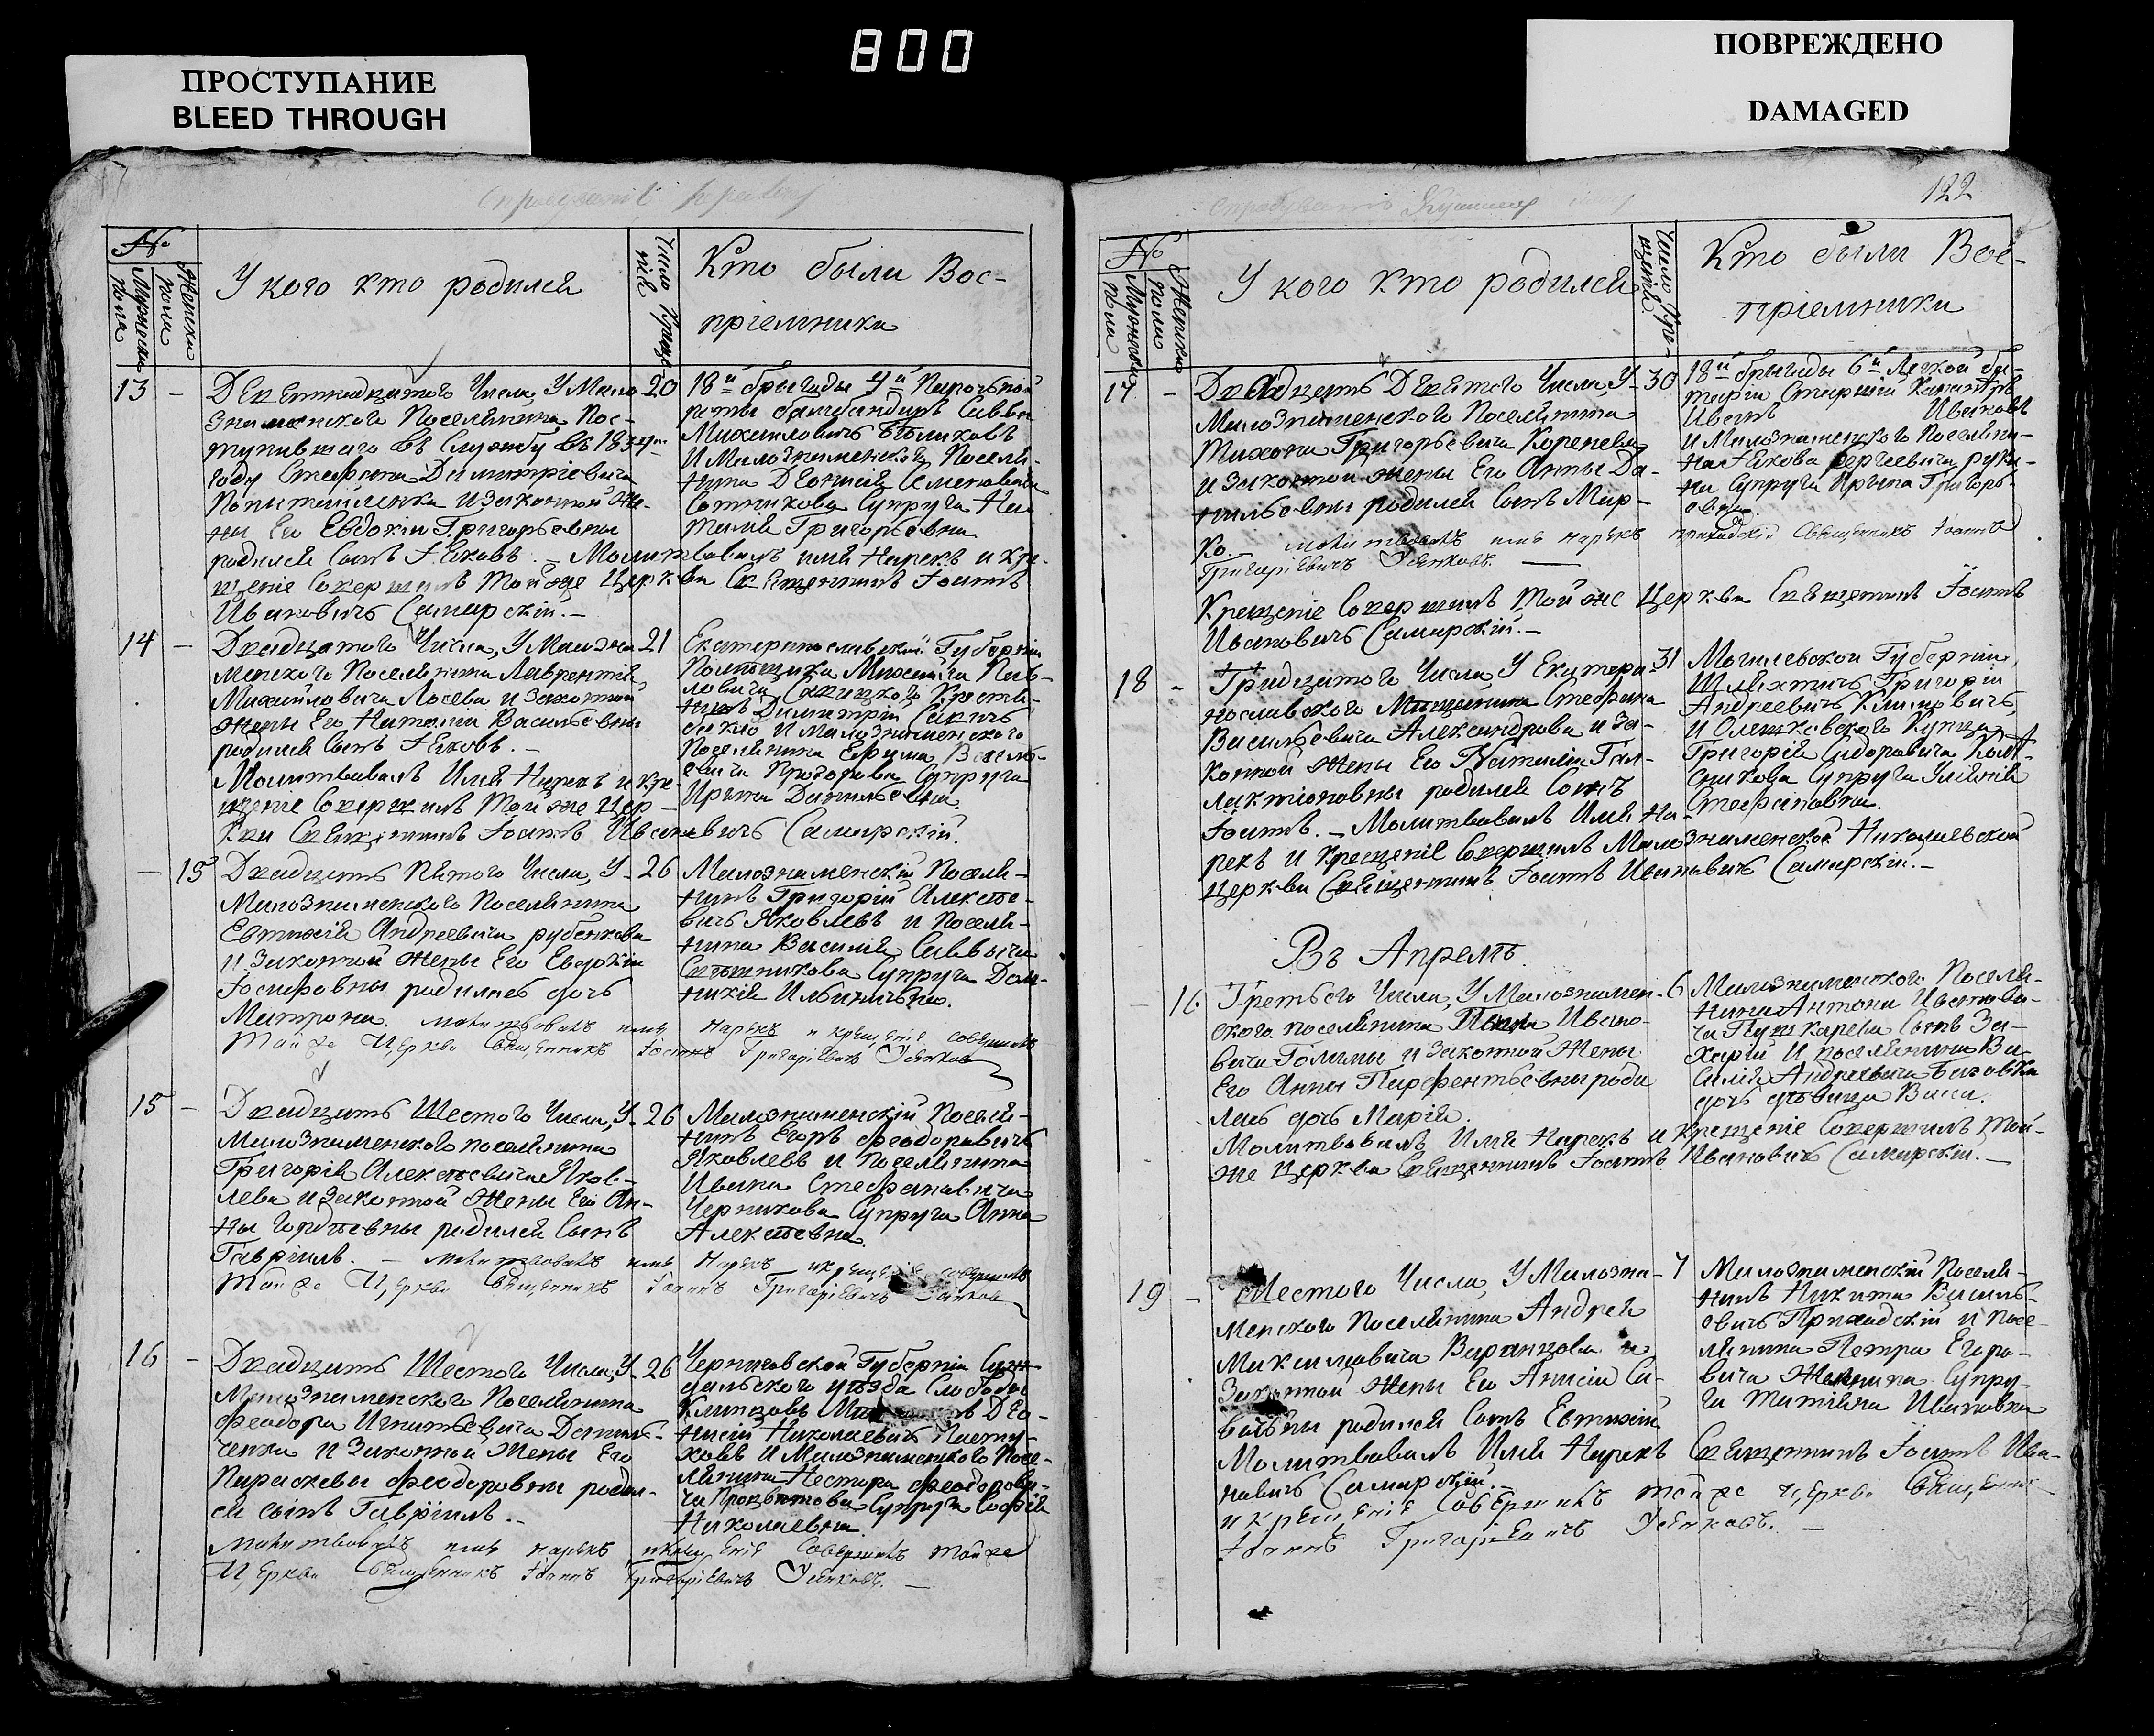 800
ПРОСТУПАНИЕ
BLEED THROUGH
ПОВРЕЖДЕНО
DAMAGED
№
Мужеска пола
Женска пола
У кого кто родился
Число
Кто были Вос-
пріемники
13 - Девятнадцатого Числа, У Мало 20
знаменского Поселянина Пос-
тупившаго въ Службу въ 1834м
году Стефана Димитріевича
и Законной Же-
ны Его Евдокіи Григорьевны
родился Сынъ Яковъ. – Молитвовалъ имя Нарекъ и кре-
щеніе Совершилъ Той же Церкви Священникъ Іоаннъ
Ивановичъ Самарскій. –
18й бригады
роты Савва
Михаиловичъ
и Малознаменского Посели-
нина Деонисія Семеновича
Сотникова Супруга На-
талія Григорьевна
14 - Двадцатого Числа, У Малозна 21
менского Поселянина Лаврентія
Михаиловича Лосева и Законной
Жены Его Наталіи Васильевны
родился Сынъ Яковъ. –
Молитвовалъ Имя Нарекъ и кре-
щеніе Совершилъ Той же Цер-
кви Священникъ Іоаннъ Ивановичъ Самарскій.
Екатеринославской Губерніи
Помещика Михаила Пав-
ловича Крестья-
нинъ Димитрій
и Малознаменского
Поселянина Ефима Василь-
евича Супруга
Ирина Данильевна
- 15 Двадцать Пятого Числа, У 26
Малознаменского Поселянина
Евтихія Андреевича Рубенкова
и Законной Жены Его Евдокіи
Іосифовны родилась дочь
Матрона. Молитвовалъ имя Нарекъ и крещеніе совершилъ
Той же Церкви Священникъ Іоаннъ Григоріевичъ Усенковъ
Малознаменскій Поселя-
нинъ Григорій Алексее-
вичъ Яковлевъ и Поселя-
нина Василія Саввича
Супруга Дом-
никія Ильинична.
15 - Двадцать Шестого Числа, У 26
Малознаменского поселянина
Григорія Алексеевича Яков-
лева и Законной Жены Его Ан-
ны родился Сынъ
Гавріилъ. – Молитвовалъ имя Нарекъ и крещеніе совершилъ
Той же Церкви Священникъ Іоаннъ Григоріевичъ
Малознаменскій Поселя-
нинъ Егоръ Феодоровичъ
Яковлевъ и Поселянина
Ивана Стефановича
Черникова Супруга Анна
Алексеевна.
16 - Двадцать Шестого Числа, У 26
Малознаменского Поселянина
Феодора Игнатьевича Даниль-
ченка и Законной Жены Его
Параскевы Феодоровны родил-
ся сынъ Гавріилъ. –
Молитвовалъ имя нарекъ и крещеніе Совершилъ Той же
Церкви Священникъ Іоаннъ Григоріевичъ Усенковъ. –
Черниговской Губерніи
уезда Слободы
Клинцовъ Део-
нисій Николаевичъ
и Малознаменского Посе-
лянина Нестора Феодорови-
ча Супруга Софія
Николаевна.
122
№
Мужеска пола
Женска пола
У кого кто родился
Число
Кто были Вос-
пріемники
17 - Двадцать Девятого Числа, У 30
Малознаменского Поселянина
Тихона Григорьевича Коренева
и Законной жены Его Анны Да-
нильевны родился Сынъ Мар-
ко. – молитвовалъ имя нарекъ приходскій Священникъ Іоаннъ
Григоріевичъ Усенковъ. –
Крещеніе Совершилъ Той же Церкви Священникъ Іоаннъ
Ивановичъ Самарскій. –
18й бригады 6й Легкой ба-
тареи Старшій
Иванъ Ивановъ
и Малознаменского Поселяни-
на Якова Сергеевича
Супруга Ирина Григорь-
евна.
18 - Тридцатого Числа, У Екатери- 31
нославского Мещанина Стефана
Васильевича Александрова и За-
конной Жены Его Наталіи Гал-
актіоновны родился Сынъ
Іоаннъ. – Молитвовалъ Имя На-
рекъ и Крещеніе Совершилъ Малознаменской Николаевской
Церкви Священникъ Іоаннъ Ивановичъ Самарскій. –
Могилевской Губерніи
Шляхтичъ Григорій
Андреевичъ Климовичъ,
и Олешковского Купца
Григорія Сидоровича
Супруга
Стефановна.
Въ Апреле
- 16 Третьего Числа, У Малознамен- 6
ского поселянина Павла Ивано-
вича и Законной Жены
Его Анны Парфентьевны роди
лась дочь Марія.
Молитвовалъ Имя Нарекъ и Крещеніе Совершилъ Той-
же Церкви Священникъ Іоаннъ Ивановичъ Самарскій. –
Малознаменского Поселя-
нина Антона Иванови-
ча Пушкарева Сынъ За-
харій и поселянина Ва-
силія Андреевича
дочь девица Васса.
19 - Шестого Числа, У Малозна- 7
менского Поселянина Андрея
Максимовича Варанцова и
Законной Жены Его Анисіи Са-
родился Сынъ Евтихій
Молитвовалъ Имя Нарекъ Священникъ Іоаннъ Ива-
новичъ Самарскій.
и крещеніе Совершилъ той же церкви Священникъ
Іоаннъ Григоріевичъ Усенковъ. –
Малознаменскій Поселя-
нинъ Никита Василь-
евичъ и Посе-
лянина Петра Егоро-
вича Супру-
га Татіяна Ивановна